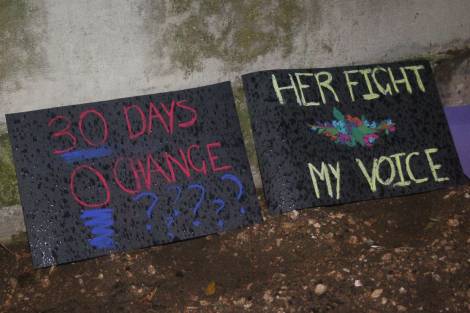 30 DAYS
0 CHANGE
????
HER FIGHT
MY VOICE